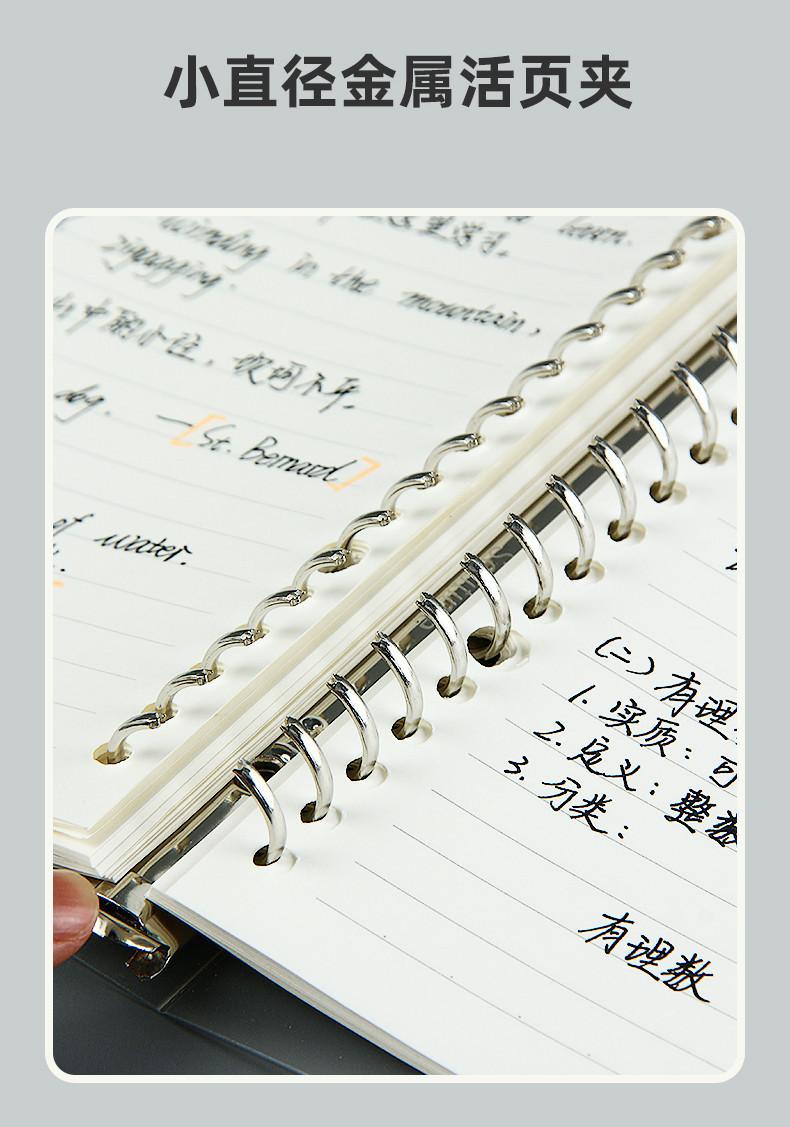 小直径金属活页夹
winding in the mountain,
zigzagging.
中的小径，坎坷不平。
dog. —[St. Bernard]
of water.
(二) 有理
1. 实质：可
2. 定义：整数
3. 分类：
有理数